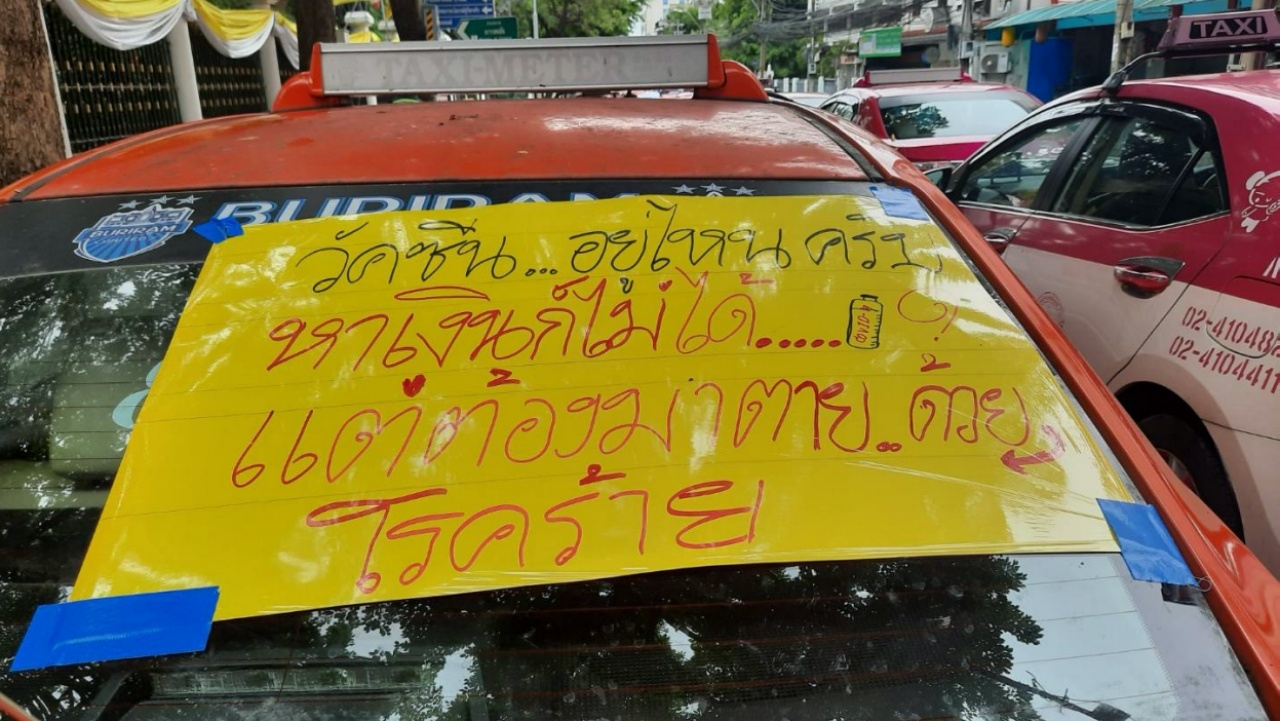 TAXI-METER
TAXI
BURIRAM
BURIRAM
วัคซีน...อยู่ไหนครับ
หาเงินก็ไม่ได้.....
แต่ต้องมาตาย..ด้วย
โรคร้าย
02-410482
02-4104411